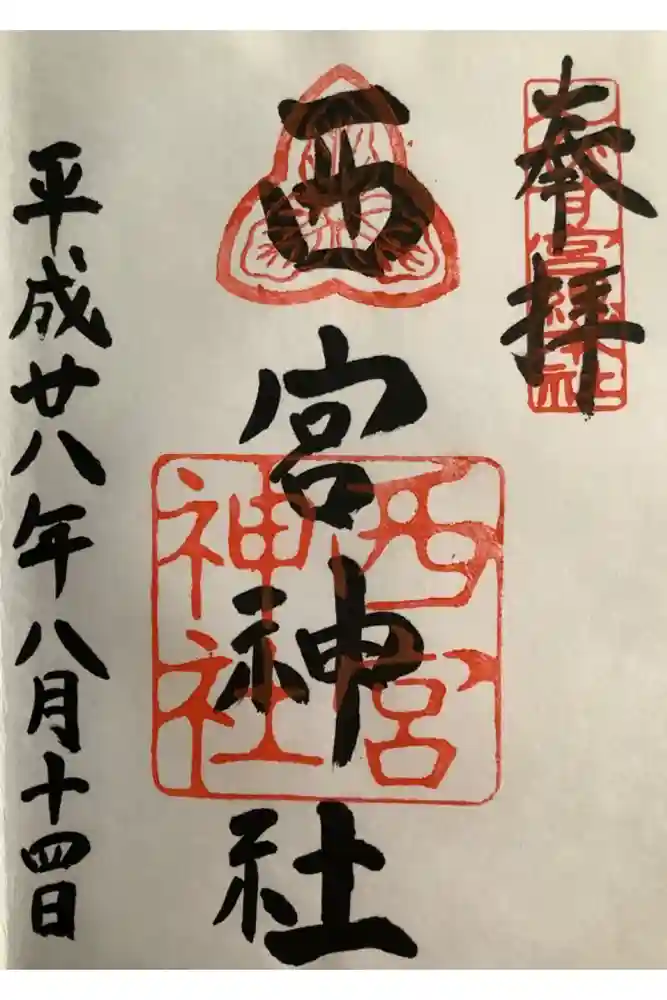 奉拝
西宮神社
西宮神社
平成廿八年八月十四日